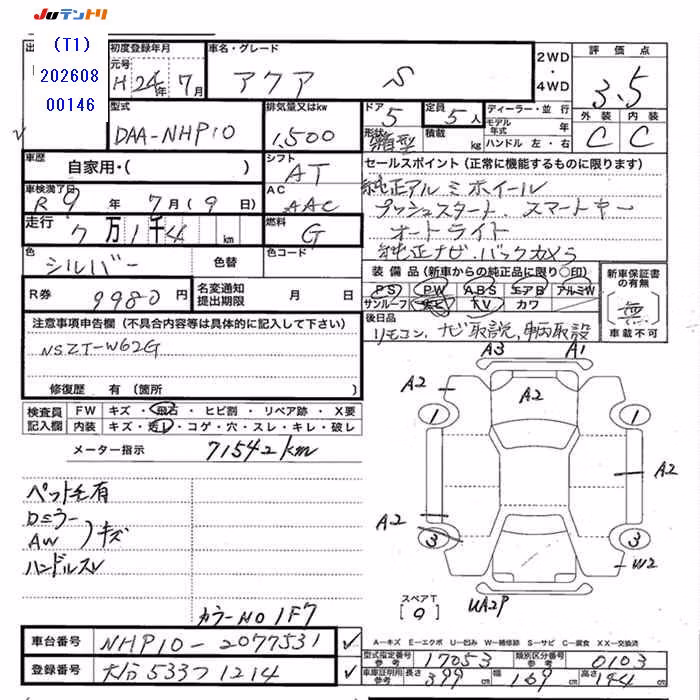 JUテントリ
(T1)
202608
00146
初度登録年月
元号
H 24年 7月
車名・グレード
アクア S
2WD
・
4WD
評価点
3.5
型式
DAA-NHP10
排気量又はkw
1,500
ドア
5
形状
箱型
定員
5人
積載
kg
ディーラー・並行
モデル年式
年
ハンドル 左・右
外装
内装
C
C
車歴
自家用・( )
シフト
AT
車検満了日
R 9年 7月(9日)
AC
AAC
走行
7万1千4 km
燃料
G
色
シルバー
色替
色コード
R券
9980円
名変通知
提出期限
月 日
セールスポイント(正常に機能するものに限ります)
純正アルミホイール
プッシュスタート、スマートキー
オートライト
純正ナビ、バックカメラ
装備品(新車からの純正品に限り〇印)
PS PW ABS エアB アルミW
サンルーフ ナビ TV カワ
新車保証書
の有無
無
車載不可
後日品
リモコン、ナビ取説、車両取説
注意事項申告欄(不具合内容等は具体的に記入して下さい)
NSZT-W62G
修復歴 有(箇所 )
検査員
記入欄
FW キズ・飛石・ヒビ割・リペア跡・X要
内装 キズ・汚レ・コゲ・穴・スレ・キレ・破レ
メーター指示 71542km
ペット毛有
Dミラー
AW
キズ
ハンドルスレ
カラーNO 1F7
A3
A1
A2
A2
1
1
A2
A2
3
3
W2
スペアT
[9]
UA2P
A―キズ E―エクボ U―凹み W―補修跡 S―サビ C―腐食 XX―交換済
車台番号
NHP10-2077531
登録番号
大分533つ1214
型式指定番号
参考
17053
類別区分番号
参考
0103
車庫証明用
参考
長さ
399cm
幅
169cm
高さ
144cm